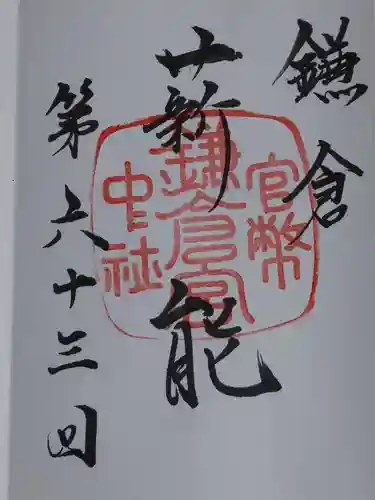 鎌倉
薪能
第六十三回
官幣
鎌倉宮
中社